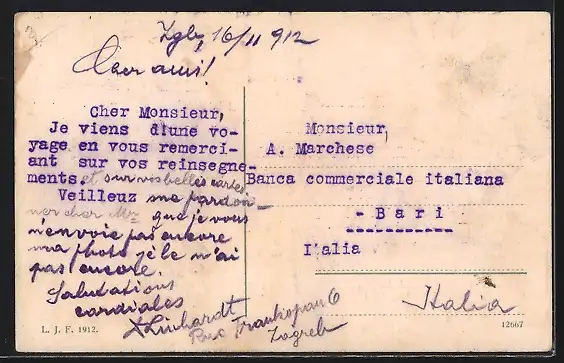 Zgb, 16/11 912
Cher ami!
Cher Monsieur,
Je viens d'une vo-
yage en vous remerci-
ant sur vos reinsegne-
ments. et sur vos belles cartes.
Veilleuz me pardon-
ner cher Mr que je vous
n'envoie pas encore
ma photo je le n'ai
pas encore.
Salutations
cordiales
ALinhardt
Rue Frankopan 6
Zagreb
L. J. F. 1912.
Monsieur,
A. Marchese
Banca commerciale italiana
- Bari -
I'alia
Italia
12667